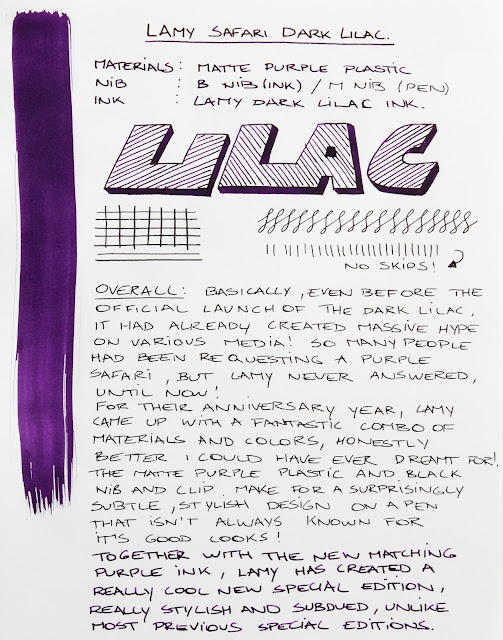 LAMY SAFARI DARK LILAC.
MATERIALS: MATTE PURPLE PLASTIC
NIB : B NIB (INK) / M NIB (PEN)
INK : LAMY DARK LILAC INK.
LILAC
NO SKIPS!
OVERALL: BASICALLY, EVEN BEFORE THE
OFFICIAL LAUNCH OF THE DARK LILAC,
IT HAD ALREADY CREATED MASSIVE HYPE
ON VARIOUS MEDIA! SO MANY PEOPLE
HAD BEEN REQUESTING A PURPLE
SAFARI, BUT LAMY NEVER ANSWERED,
UNTIL NOW!
FOR THEIR ANNIVERSARY YEAR, LAMY
CAME UP WITH A FANTASTIC COMBO OF
MATERIALS AND COLORS, HONESTLY
BETTER I COULD HAVE EVER DREAMT FOR!
THE MATTE PURPLE PLASTIC AND BLACK
NIB AND CLIP MAKE FOR A SURPRISINGLY
SUBTLE, STYLISH DESIGN ON A PEN
THAT ISN'T ALWAYS KNOWN FOR
IT'S GOOD LOOKS!
TOGETHER WITH THE NEW MATCHING
PURPLE INK, LAMY HAS CREATED A
REALLY COOL NEW SPECIAL EDITION,
REALLY STYLISH AND SUBDUED, UNLIKE
MOST PREVIOUS SPECIAL EDITIONS.